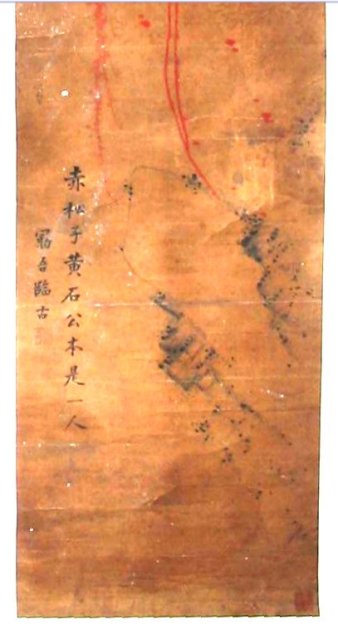 赤松子黄石公本是一人
窮谷臨古